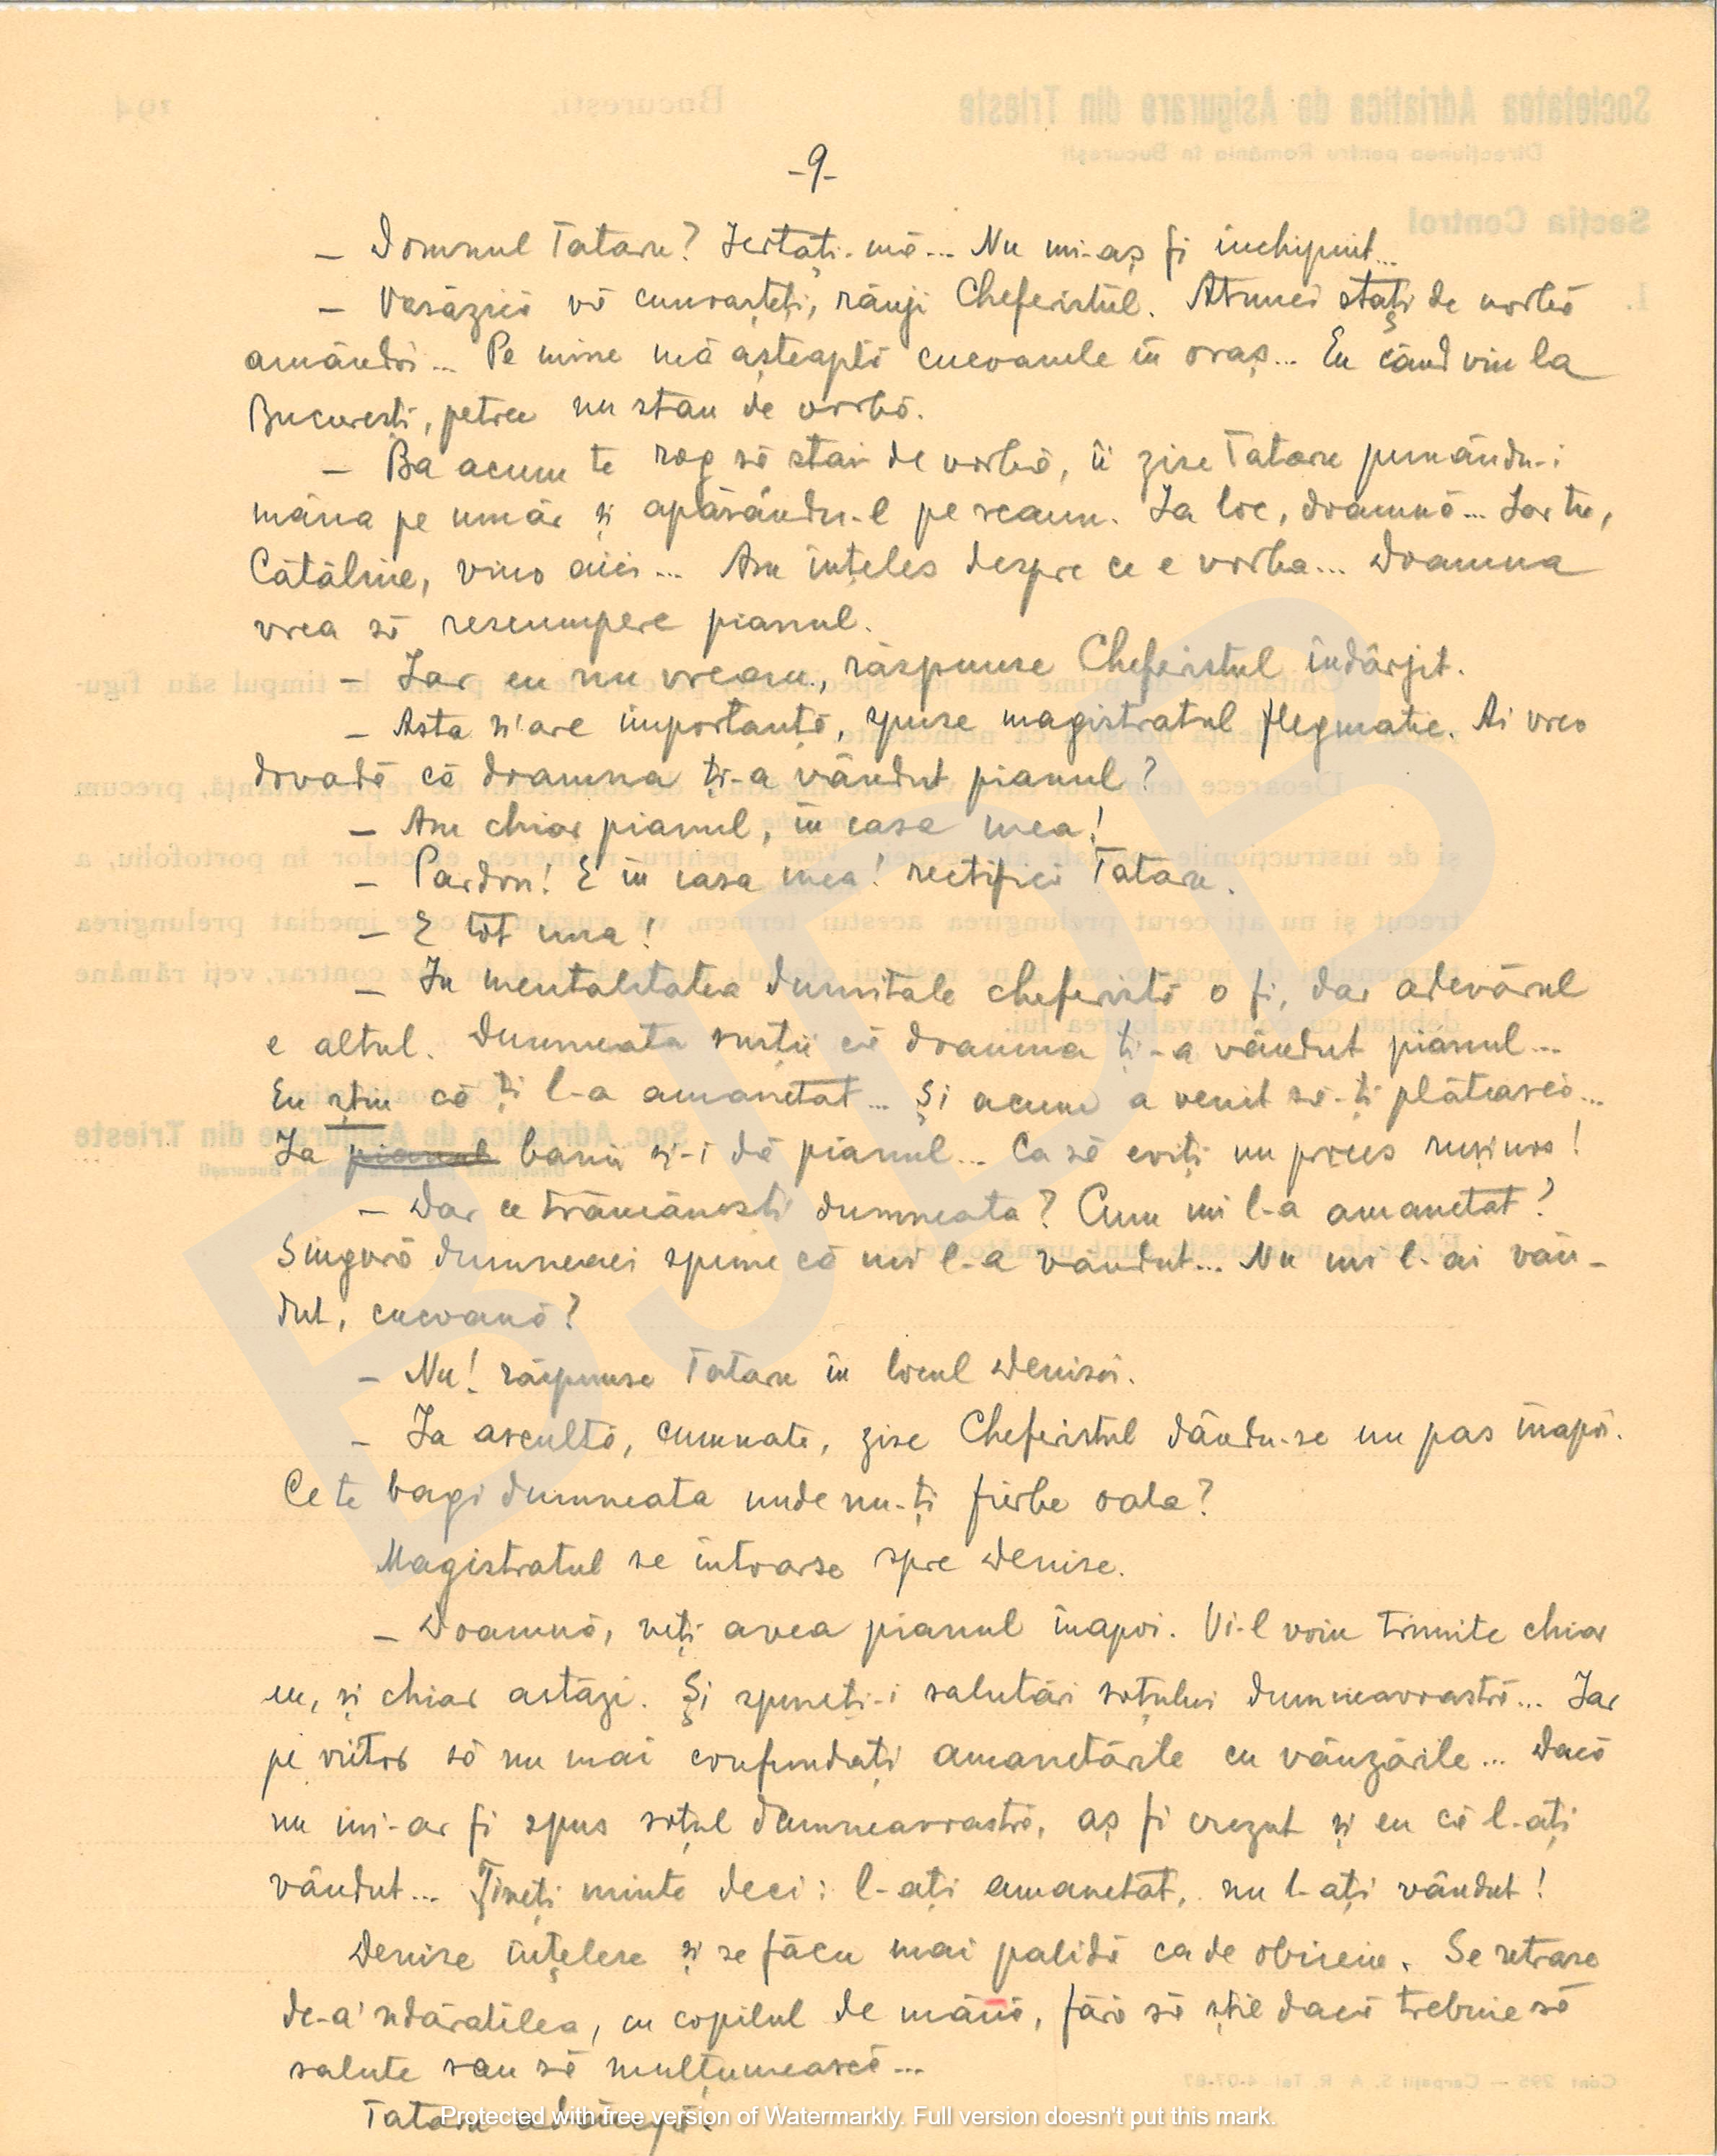 -9-
– Domnul Tataru? Iertați-mă... Nu mi-aș fi închipuit...
– Vasăzică vă cunoașteți, rânji Cheferistul. Atunci stați de vorbă
amândoi... Pe mine mă așteaptă cucoanele în oraș... Eu când vin la
București, petrec nu stau de vorbă.
– Ba acum te rog să stai de vorbă, îi zise Tataru punându-i
mâna pe umăr și apăsându-l pe scaun. Ia loc, doamnă... Iar tu,
Cătăline, vino aici... Am înțeles despre ce e vorba... Doamna
vrea să rescumpere pianul.
– Iar eu nu vreau, răspunse Cheferistul îndârjit.
– Asta n'are importanță, spuse magistratul flegmatic. Ai vreo
dovadă că doamna ți-a vândut pianul?
– Am chiar pianul, în casa mea!
– Pardon! E în casa mea! rectifică Tataru.
– E tot una!
– In mentalitatea dumitale cheferistă o fi, dar adevărul
e altul. Dumneata susții că doamna ți-a vândut pianul...
Eu știu că ți l-a amanetat... Și acum a venit să-ți plătească...
Ia pianul banii și-i dă pianul... Ca să eviți un proces rușinos!
– Dar ce trăncănești dumneata? Cum mi l-a amanetat?
Singură dumneaei spune că mi l-a vândut... Nu mi l-ai vân-
dut, cucoană?
– Nu! răspunse Tataru în locul Denisei.
– Ia ascultă, cumnate, zise Cheferistul dându-se un pas înapoi.
Ce te bagi dumneata unde nu-ți fierbe oala?
Magistratul se întoarse spre Denise.
– Doamnă, veți avea pianul înapoi. Vi-l voiu trimite chiar
eu, și chiar astăzi. Și spuneți-i salutări soțului dumneavoastră... Iar
pe viitor să nu mai confundați amanetările cu vânzările... Dacă
nu mi-ar fi spus soțul dumneavoastră, aș fi crezut și eu că l-ați
vândut... Țineți minte deci: l-ați amanetat, nu l-ați vândut!
Denise înțelese și se făcu mai palidă ca de obiceiu. Se retrase
de-a'ndăratilea, cu copilul de mână, fără să știe dacă trebuie să
salute sau să mulțumească...
Tataru adăugă:
Protected with free version of Watermarkly. Full version doesn't put this mark.
BJDB
Societatea Adriatica de Asigurare din Trieste
București,
194
Direcțiunea pentru România în București
Secția Control